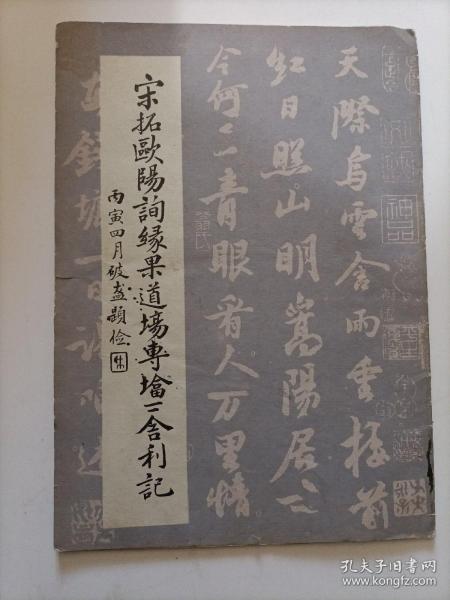 天際烏雲含雨重樓前
紅日照山明嵩陽居士
今何在青眼看人万里情
宋拓歐陽詢緣果道場專墖下舍利記
丙寅四月破盋題檢
孔夫子旧书网
www.kongfz.com